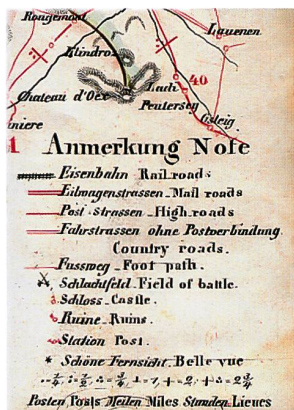 Rougemont
Lauenen
Windros
Lach
40
Chateau d'Oex
Peutersey
Gsteig
niere
1 Anmerkung Note
Eisenbahn Railroads
Eilwagenstrassen Mail roads
Post-Strassen High.roads
Fahrstrassen ohne Postverbindung
Country roads.
Fussweg Foot path.
Schlachtfeld. Field of battle.
Schloss Castle.
Ruine Ruins.
Station Post.
* Schöne Fernsicht. Belle vue
Posten Posts Meilen Miles Stunden Lieues